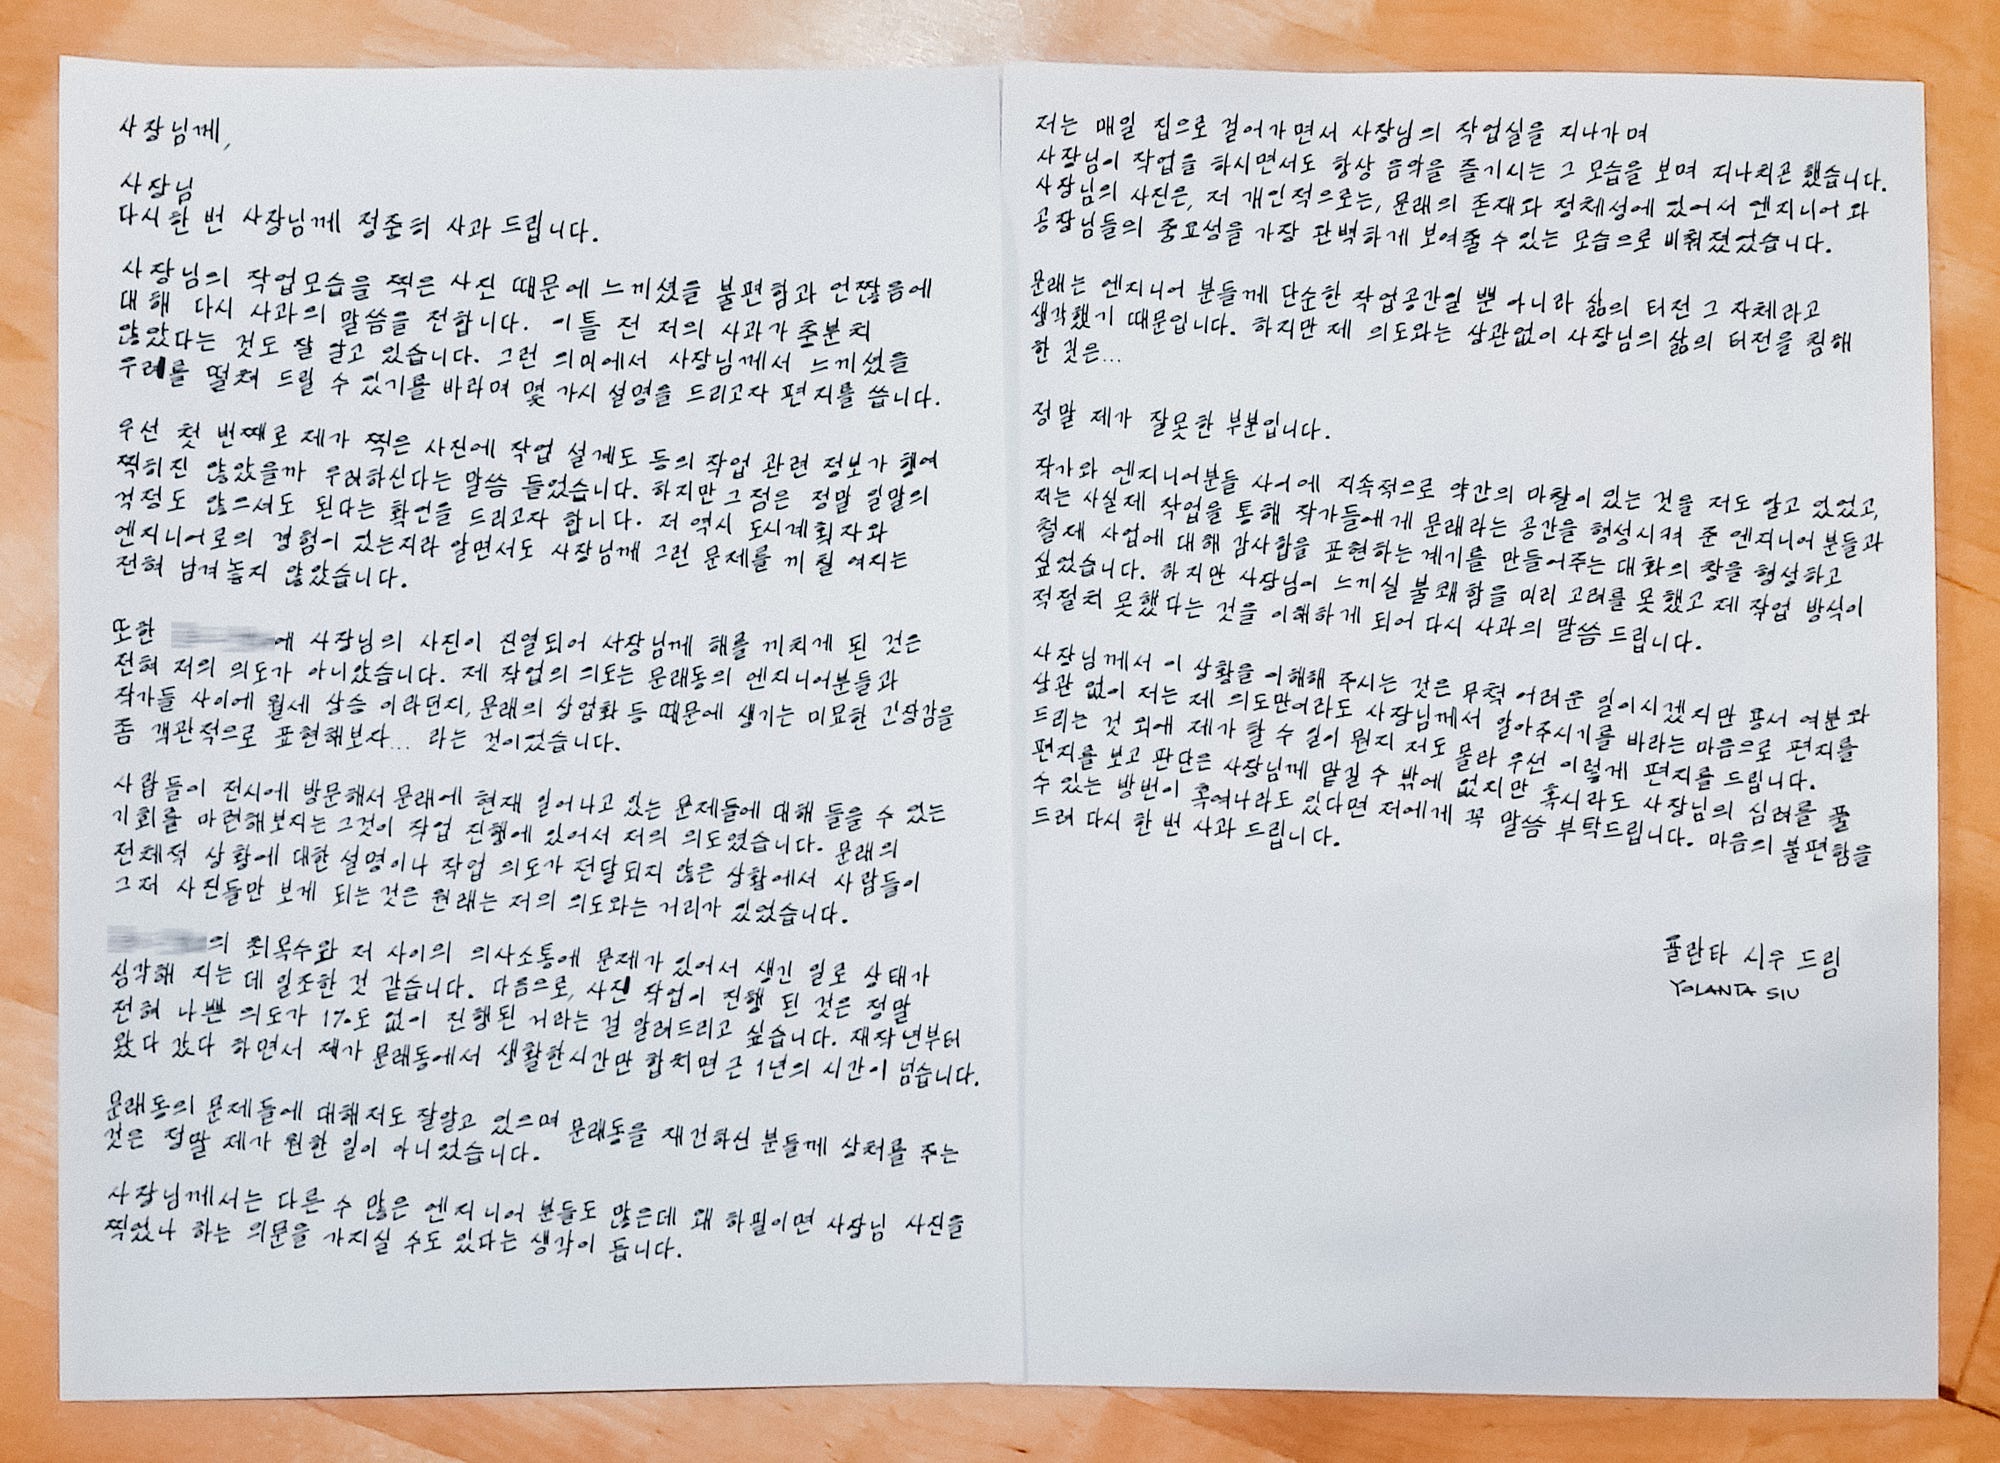 사장님께,
사장님
다시 한 번 사장님께 정중히 사과 드립니다.
사장님의 작업모습을 찍은 사진 때문에 느끼셨을 불편함과 언짢음에
대해 다시 사과의 말씀을 전합니다. 이틀 전 저의 사과가 충분치
않았다는 것도 잘 알고 있습니다. 그런 의미에서 사장님께서 느끼셨을
우려를 떨쳐 드릴 수 있기를 바라며 몇 가시 설명을 드리고자 편지를 씁니다.
우선 첫 번째로 제가 찍은 사진에 작업 설계도 등의 작업 관련 정보가 행여
찍히진 않았을까 우려하신다는 말씀 들었습니다. 하지만 그 점은 정말 일말의
걱정도 않으셔도 된다는 확언을 드리고자 합니다. 저 역시 도시계획자와
엔지니어로의 경험이 있는지라 알면서도 사장님께 그런 문제를 끼칠 여지는
전혀 남겨놓지 않았습니다.
또한 에 사장님의 사진이 진열되어 사장님께 해를 끼치게 된 것은
전혀 저의 의도가 아니었습니다. 제 작업의 의도는 문래동의 엔지니어분들과
작가들 사이에 월세 상승 이라던지, 문래의 상업화 등 때문에 생기는 미묘한 긴장감을
좀 객관적으로 표현해보자... 라는 것이었습니다.
사람들이 전시에 방문해서 문래에 현재 일어나고 있는 문제들에 대해 들을 수 있는
기회를 마련해보자는 그것이 작업 진행에 있어서 저의 의도였습니다. 문래의
전체적 상황에 대한 설명이나 작업 의도가 전달되지 않은 상황에서 사람들이
그저 사진들만 보게 되는 것은 원래는 저의 의도와는 거리가 있었습니다.
의 최목수와 저 사이의 의사소통에 문제가 있어서 생긴 일로 상태가
심각해 지는 데 일조한 것 같습니다. 다음으로, 사진 작업이 진행 된 것은 정말
전혀 나쁜 의도가 1%도 없이 진행된 거라는 걸 알려드리고 싶습니다. 재작년부터
왔다 갔다 하면서 제가 문래동에서 생활한시간만 합치면 근 1년의 시간이 넘습니다.
문래동의 문제들에 대해저도 잘알고 있으며 문래동을 재건하신 분들께 상처를 주는
것은 정말 제가 원한 일이 아니었습니다.
사장님께서는 다른 수 많은 엔지니어 분들도 많은데 왜 하필이면 사장님 사진을
찍었나 하는 의문을 가지실 수도 있다는 생각이 듭니다.
저는 매일 집으로 걸어가면서 사장님의 작업실을 지나가며
사장님이 작업을 하시면서도 항상 음악을 즐기시는 그 모습을 보며 지나치곤 했습니다.
사장님의 사진은, 저 개인적으로는, 문래의 존재와 정체성에 있어서 엔지니어 와
공장님들의 중요성을 가장 완벽하게 보여줄 수 있는 모습으로 비춰졌었습니다.
문래는 엔지니어 분들께 단순한 작업공간일 뿐 아니라 삶의 터전 그 자체라고
생각했기 때문입니다. 하지만 제 의도와는 상관없이 사장님의 삶의 터전을 침해
한 것은...
정말 제가 잘못한 부분입니다.
작가와 엔지니어분들 사이에 지속적으로 약간의 마찰이 있는 것을 저도 알고 있었고,
저는 사실 제 작업을 통해 작가들에게 문래라는 공간을 형성시켜 준 엔지니어 분들과
철제 사업에 대해 감사함을 표현하는 계기를 만들어주는 대화의 창을 형성하고
싶었습니다. 하지만 사장님이 느끼실 불쾌함을 미리 고려를 못했고 제 작업 방식이
적절치 못했다는 것을 이해하게 되어 다시 사과의 말씀 드립니다.
사장님께서 이 상황을 이해해 주시는 것은 무척 어려운 일이시겠지만 용서 여부와
상관 없이 저는 제 의도만이라도 사장님께서 알아주시기를 바라는 마음으로 편지를
드리는 것 외에 제가 할 수 일이 뭔지 저도 몰라 우선 이렇게 편지를 드립니다.
편지를 보고 판단은 사장님께 맡길 수 밖에 없지만 혹시라도 사장님의 심려를 풀
수 있는 방법이 혹여나라도 있다면 저에게 꼭 말씀 부탁드립니다. 마음의 불편함을
드려 다시 한 번 사과 드립니다.
욜란타 시우 드림
YOLANTA SIU